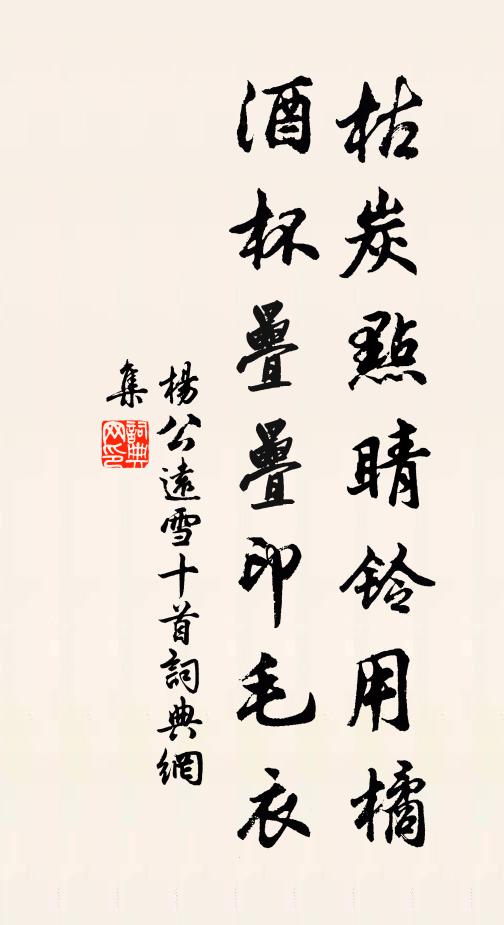 枯炭點睛鈴用橘
酒杯疊疊印毛衣
楊公遠雪十首詞典網
集
詞典
网印